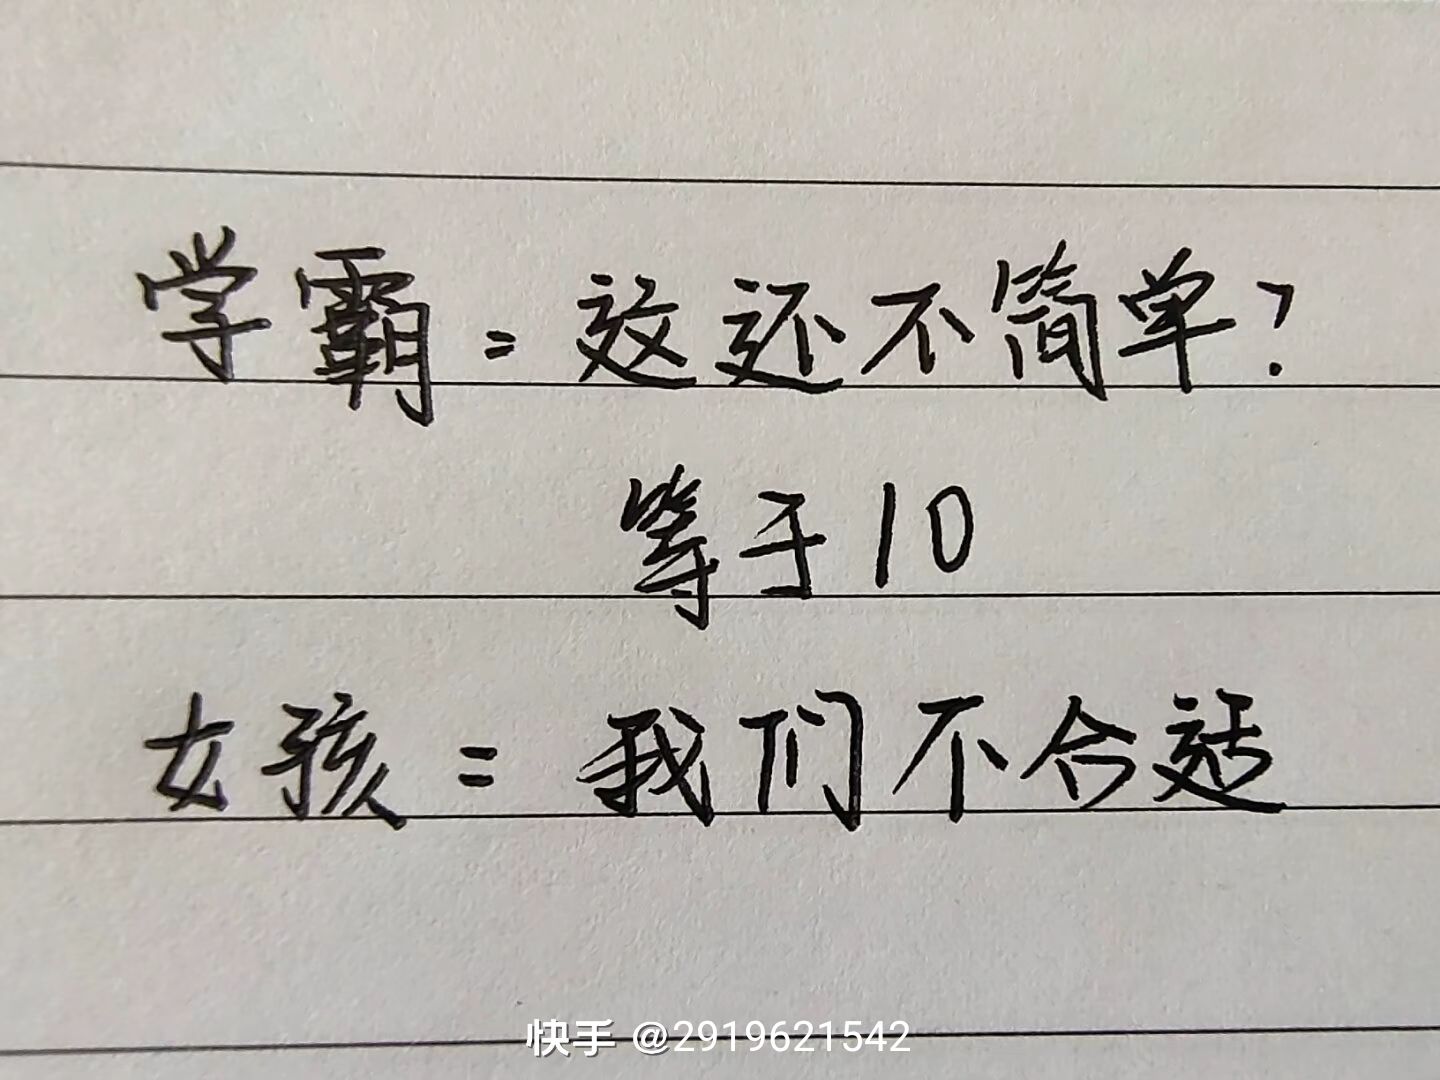 学霸=这还不简单?
等于10
女孩=我们不合适
快手 @2919621542